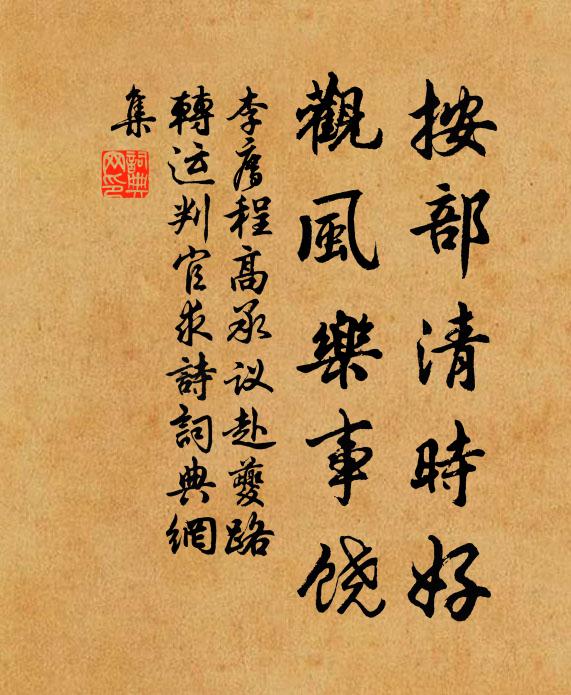 按部清時好
觀風樂事饶
李廌程高承议赴夔路
轉运判官求詩詞典網
集
詞典網印